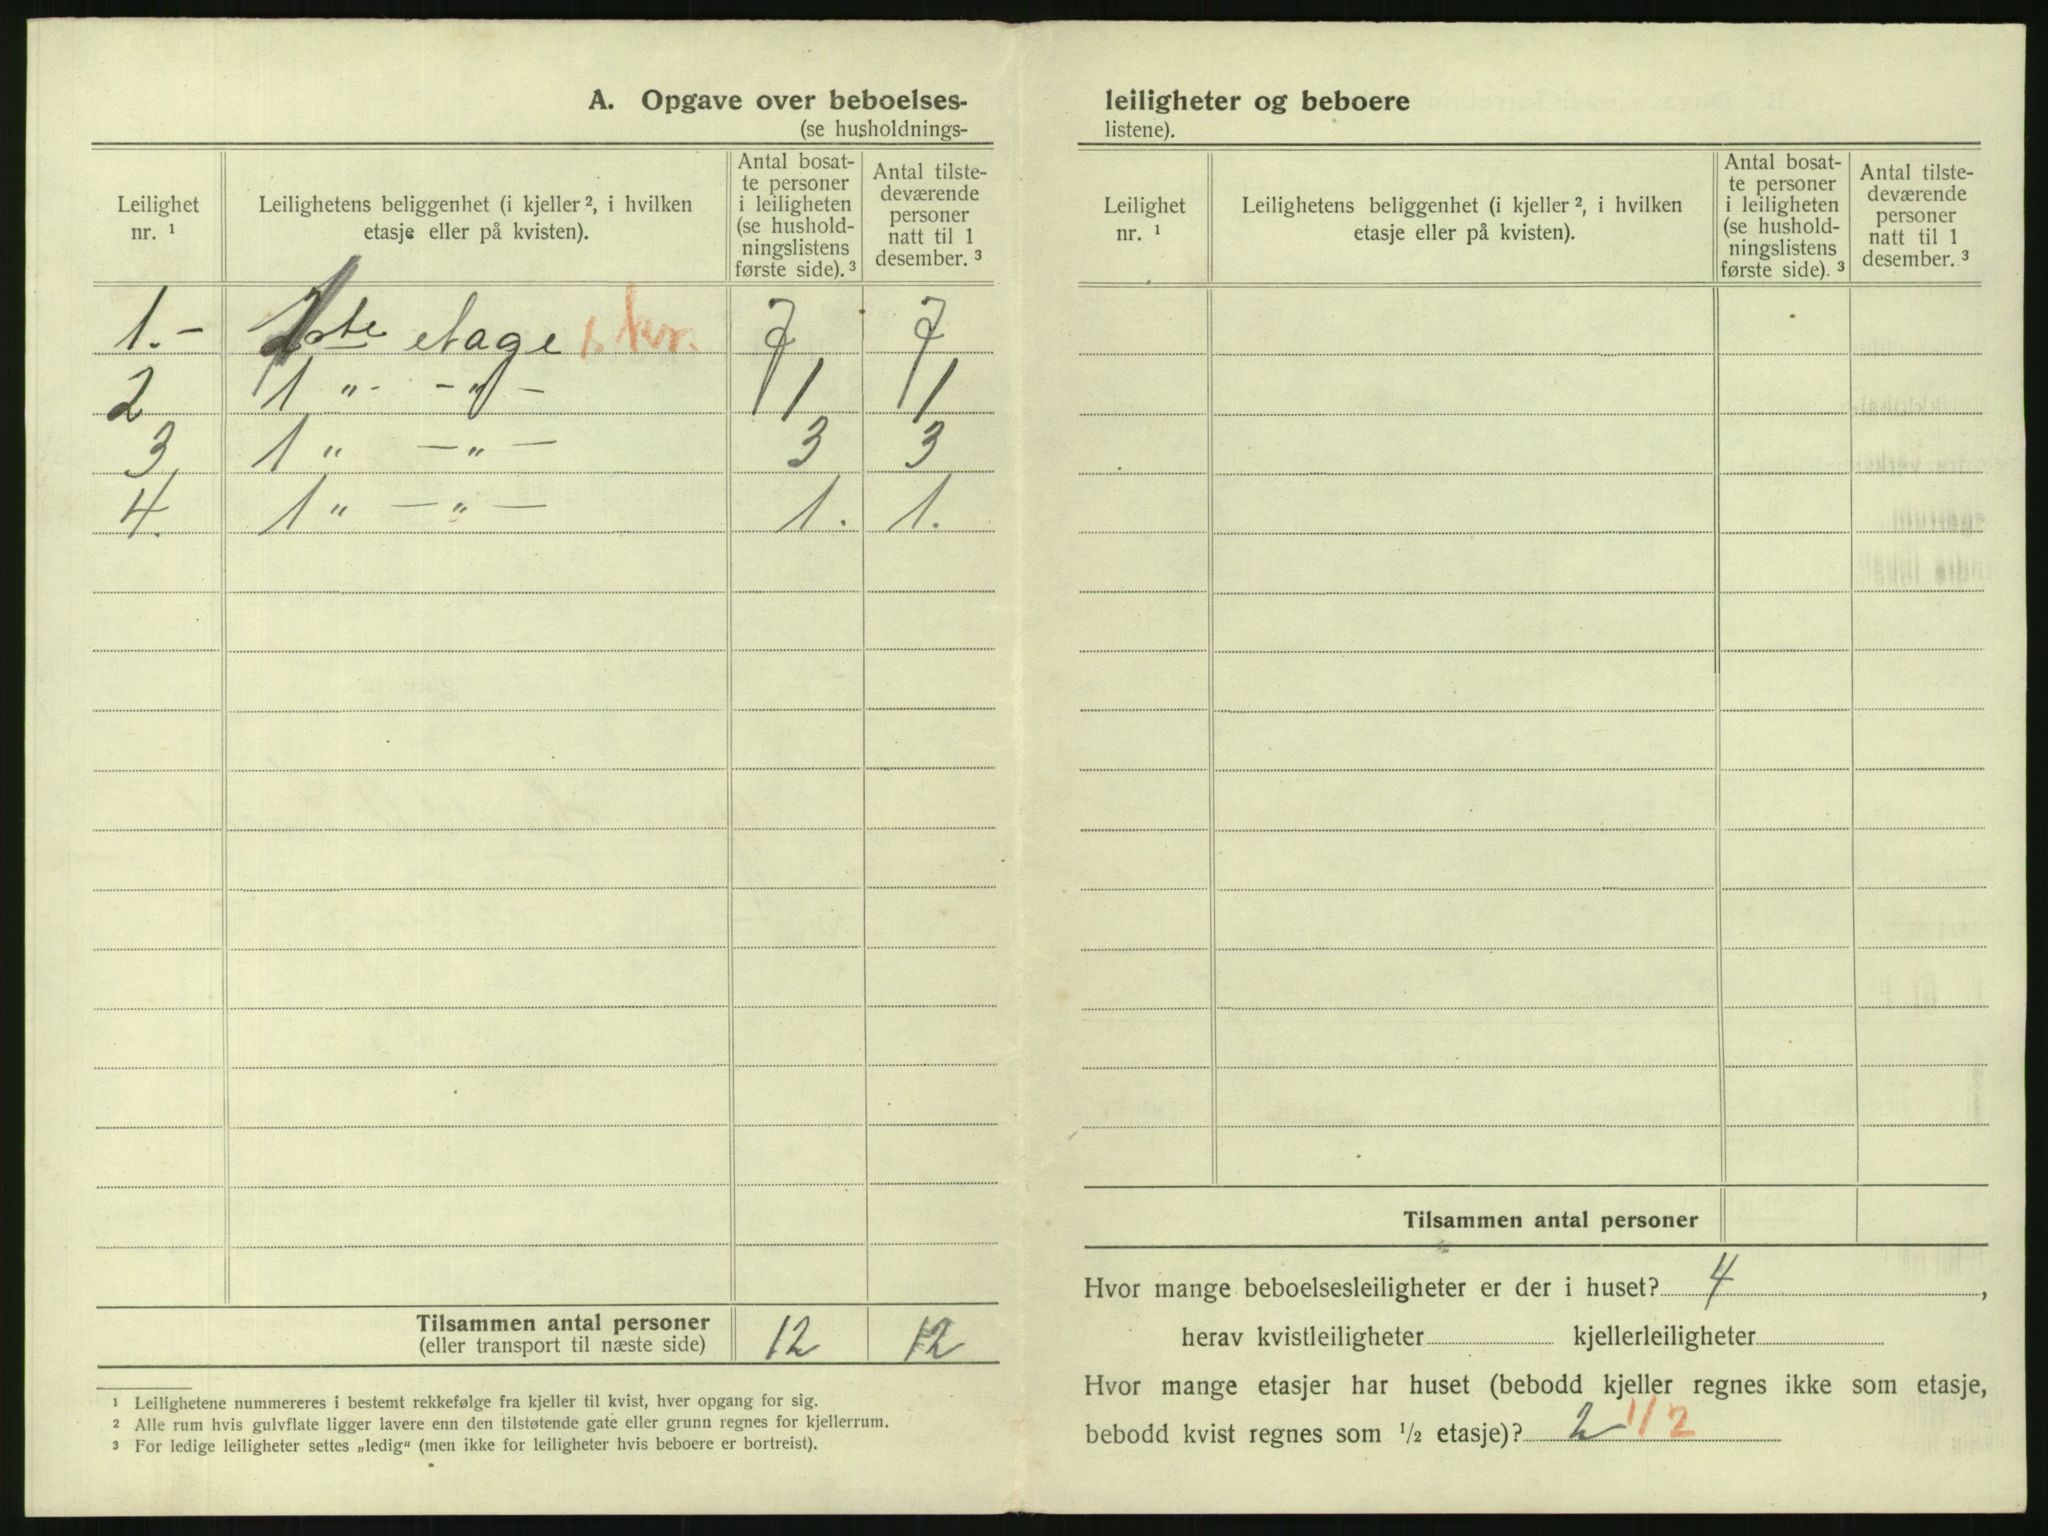 A. Opgave over beboelses-
(se husholdnings-
Leilighet nr. ¹
Leilighetens beliggenhet (i kjeller ², i hvilken etasje eller på kvisten).
Antal bosat-
te personer
i leiligheten
(se hushold-
ningslistens
første side). ³
Antal tilste-
deværende
personer
natt til 1
desember. ³
1. – 1ste etage 1. kv. 7 7
2 1 " - - " - 1 1
3 1 " — " — 3 3
4. 1 " — " — 1. 1.
Tilsammen antal personer 12 12
(eller transport til næste side)
¹ Leilighetene nummereres i bestemt rekkefølge fra kjeller til kvist, hver opgang for sig.
² Alle rum hvis gulvflate ligger lavere enn den tilstøtende gate eller grunn regnes for kjellerrum.
³ For ledige leiligheter settes „ledig" (men ikke for leiligheter hvis beboere er bortreist).
leiligheter og beboere
listene).
Leilighet nr. ¹
Leilighetens beliggenhet (i kjeller ², i hvilken etasje eller på kvisten).
Antal bosat-
te personer
i leiligheten
(se hushold-
ningslistens
første side). ³
Antal tilste-
deværende
personer
natt til 1
desember. ³
Tilsammen antal personer
Hvor mange beboelsesleiligheter er der i huset? 4,
herav kvistleiligheter kjellerleiligheter
Hvor mange etasjer har huset (bebodd kjeller regnes ikke som etasje,
bebodd kvist regnes som ½ etasje)? 2 1/2